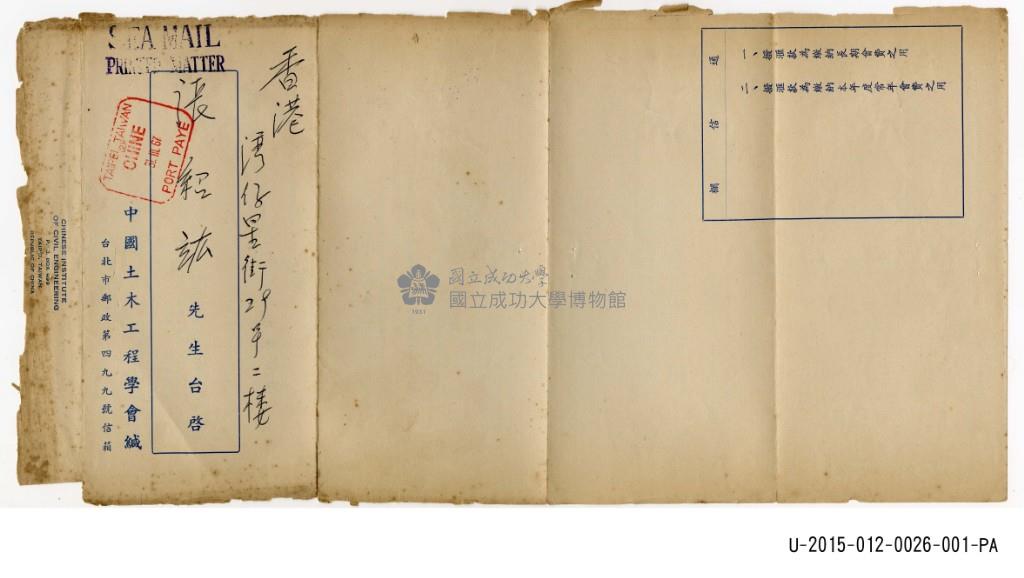 SEA MAIL
PRINTED MATTER
TAIPEI TAIWAN
CHINE
31.III.67
PORT PAYE
香港
灣仔星街29号二樓
張紹
先生台啓
中國土木工程學會緘
台北市郵政第四九九號信箱
CHINESE INSTITUTE
OF CIVIL ENGINEERING
P. O. BOX 499
TAIPEI, TAIWAN
REPUBLIC OF CHINA
通信欄
一、撥滙款為繳納長期會費之用
二、撥滙款為繳納本年度常年會費之用
1931
國立成功大學
國立成功大學博物館
U-2015-012-0026-001-PA